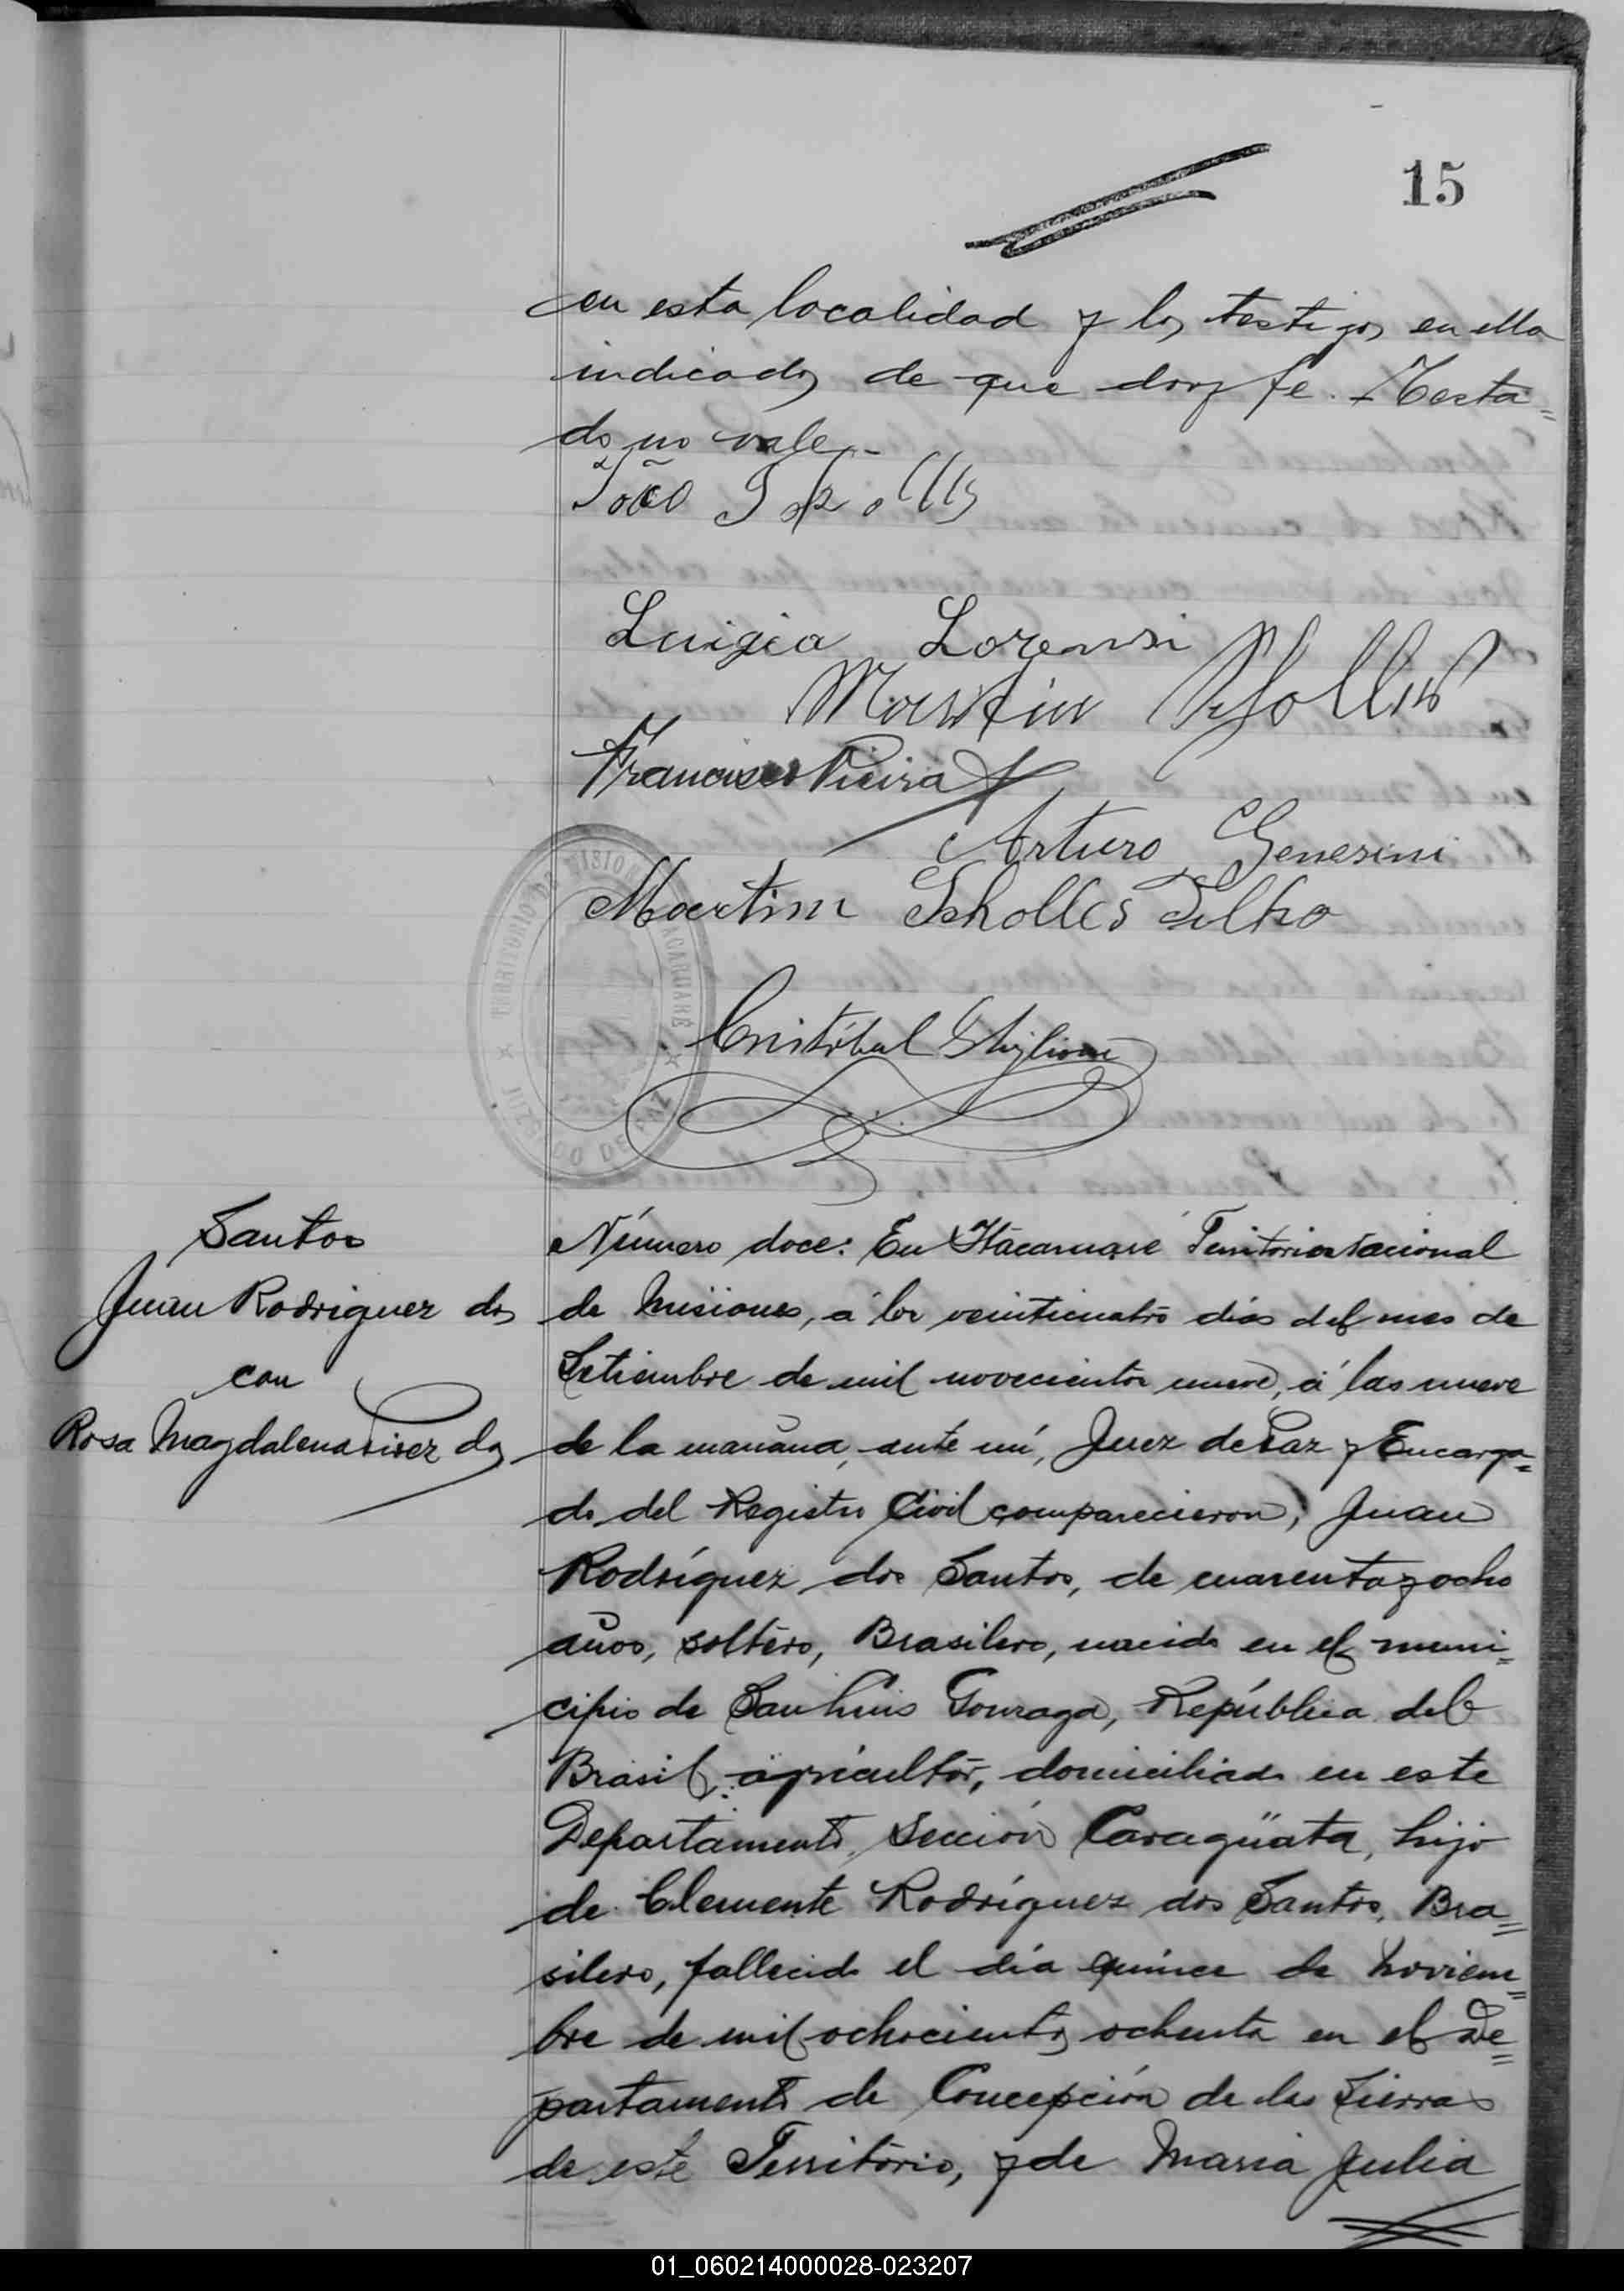 15
en esta localidad y los testigos en ella
indicados de que doy fe. – Testa=
do no vale –
João Scholles
Luizia Lorensi
Martin Scholles
Francisco Vieira
Arturo Generini
Martim Scholles Filho
TERRITORIO DE MISIONES ITACARUARÉ
JUZGADO DE PAZ
Cristóbal Ghiglione
Santos
Juan Rodriguez dos
con
Rosa Magdalena dos
Número doce: En Itacaruaré Territorio Nacional
de Misiones, á los veinticuatro dias del mes de
Setiembre de mil novecientos nueve, á las nueve
de la mañana, ante mí, Juez de Paz y Encarga=
do del Registro Civil comparecieron, Juan
Rodríguez dos Santos, de cuarenta y ocho
años, soltero, Brasilero, nacido en el muni=
cipio de San Luis Gonzaga, República del
Brasil, agricultor, domiciliado en este
Departamento, Sección Caragüata, hijo
de Clemente Rodríguez dos Santos, Bra=
silero, fallecido el día quince de Noviem=
bre de mil ochocientos ochenta en el De=
partamento de Concepción de la Sierra
de este Territorio, y de Maria Julia
01_060214000028-023207